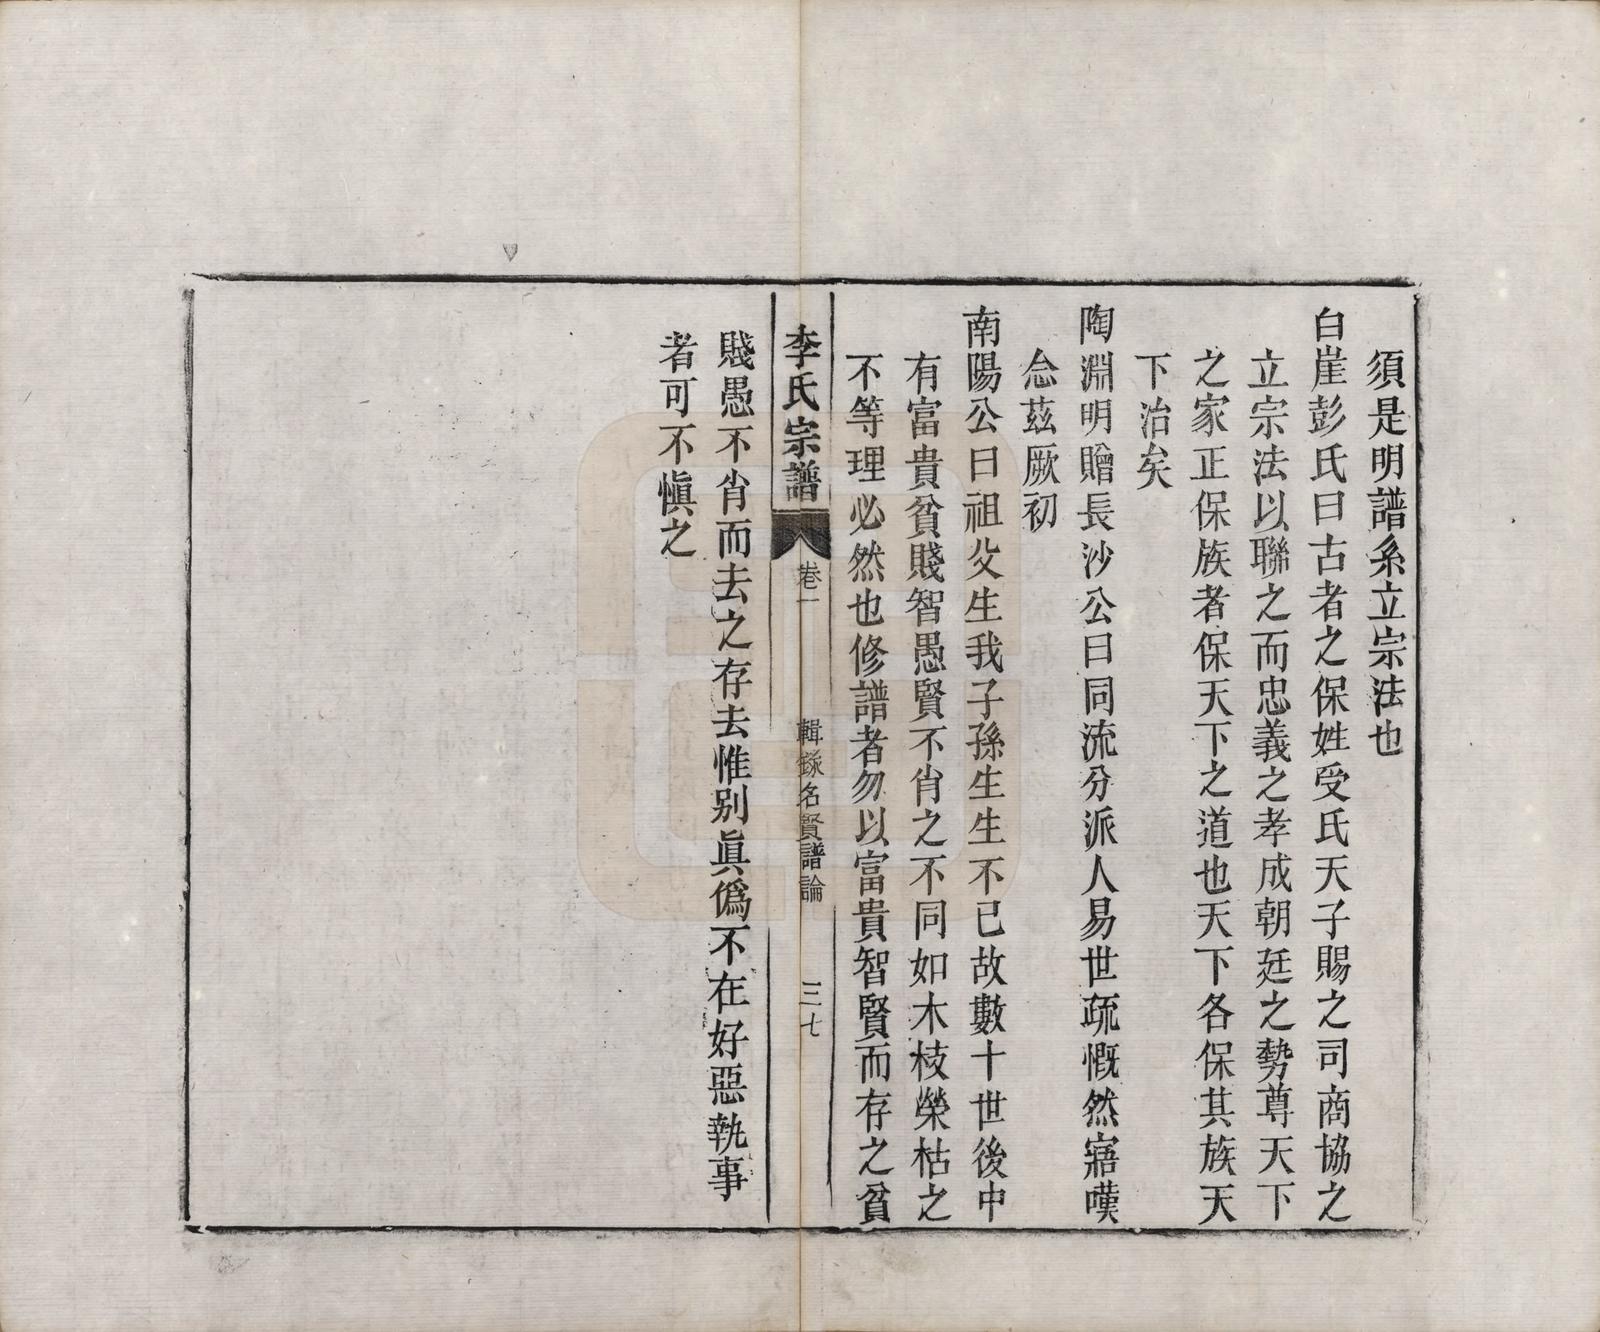 須是明譜系立宗法也
白崖彭氏曰古者之保姓受氏天子賜之司商協之
立宗法以聯之而忠義之孝成朝廷之勢尊天下
之家正保族者保天下之道也天下各保其族天
下治矣
陶淵明贈長沙公曰同流分派人易世疏慨然寤嘆
念茲厥初
南陽公曰祖父生我子孫生生不已故數十世後中
有富貴貧賤智愚賢不肖之不同如木枝榮枯之
不等理必然也修譜者勿以富貴智賢而存之貧
李氏宗譜 卷一 輯錄名賢譜論 三七
賤愚不肖而去之存去惟别眞僞不在好惡執事
者可不愼之